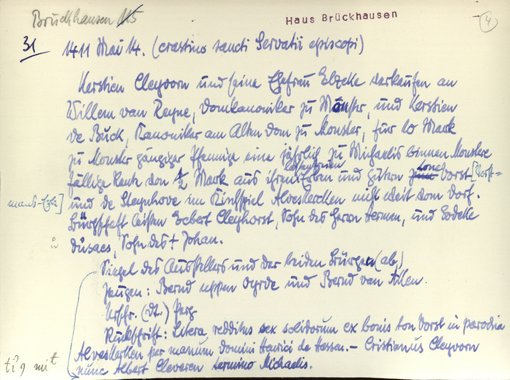 Bruckhausen 115
Haus Brückhausen
4
31
1411 Mai 14. (crastino sancti Servatii episcopi)
Kerstien Cleyvorn und seine Ehefrau Elzeke verkaufen an
Willem van Reyne, Domkanoniker zu Münster, und Kerstien
de Buck, Kanoniker am Alten Dom zu Monster, für 10 Mark
zu Monster gängiger Pfennige eine jährlich zu Michaelis binnen Monstere
fällige Rente von 1/2 Mark aus ihren und Gütern tome Vorst
und de Cleyhove im Kirchspiel Alveskerken nicht weit vom Dorf.
Bürgschaft leisten Eobert Cleyhorst, Sohn des Herrn Herman, und Godeke
dusaes, Sohn des † Johan.
Siegel des Ausstellers und der beiden Bürgen (ab)
Zeugen: Bernd uppen Oyrde und Bernd van Alen.
Urschr. (dt.) Perg
Rückschrift: Litera redditus sex solidorum ex bonis ton Vorst in parochia
Alveskerken per manum domini Henrici de Hessen. - Cristianus Cleyvorn
nunc Albert Cleveren termino Michaelis.